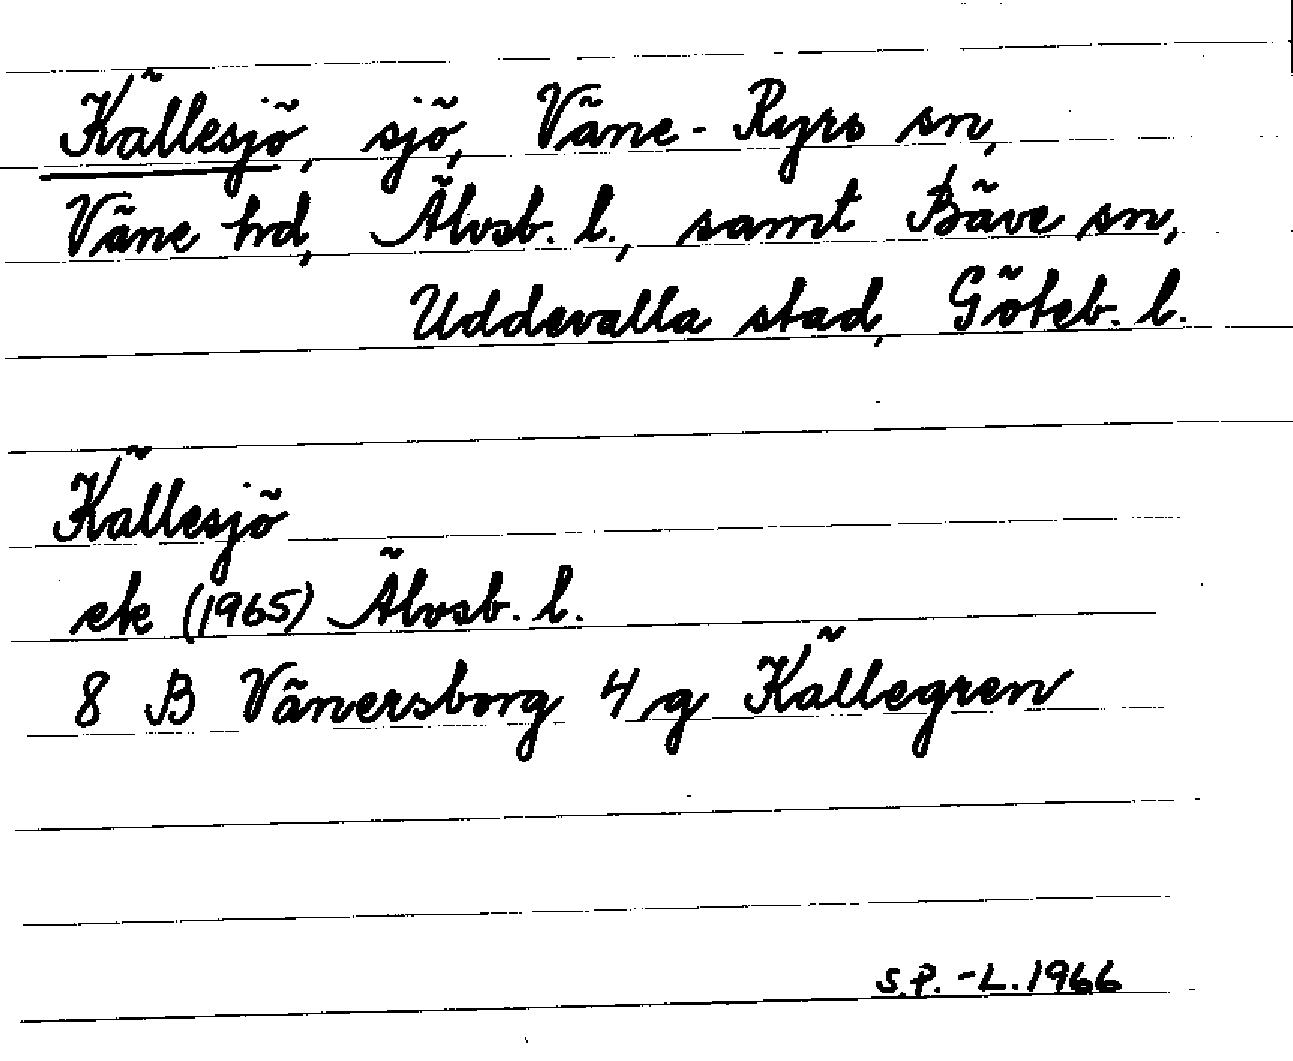 Källesjö, sjö, Väne-Ryrs sn,
Väne hd, Älvsb. l., samt Bäve sn,
Uddevalla stad, Göteb. l.
Källesjö
ek (1965) Älvsb. l.
8 B Vänersborg 4 g Källegren
S.P.-L. 1966